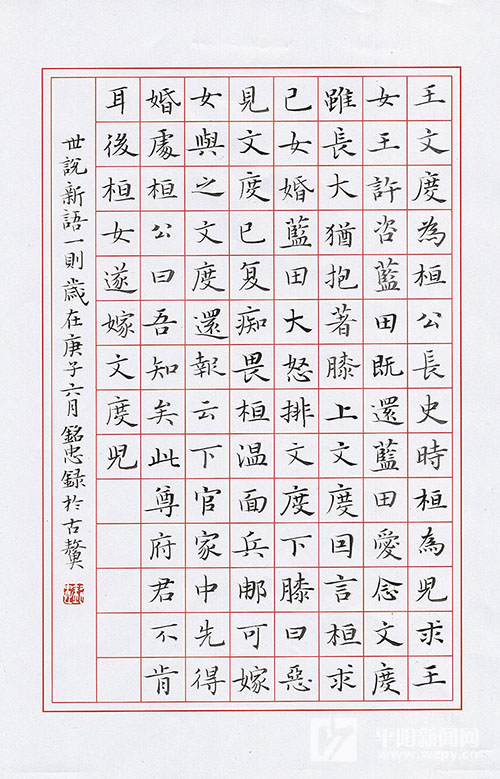 王文度為桓公長史時桓為兒求王
女王許咨藍田既還藍田愛念文度
雖長大猶抱著膝上文度因言桓求
己女婚藍田大怒排文度下膝曰惡
見文度已复痴畏桓温面兵𨙻可嫁
女與之文度還報云下官家中先得
婚處桓公曰吾知矣此尊府君不肯
耳後桓女遂嫁文度兒
世說新語一則歲在庚子六月銘忠録於古鰲
平阳新闻网
www.wzpy.com